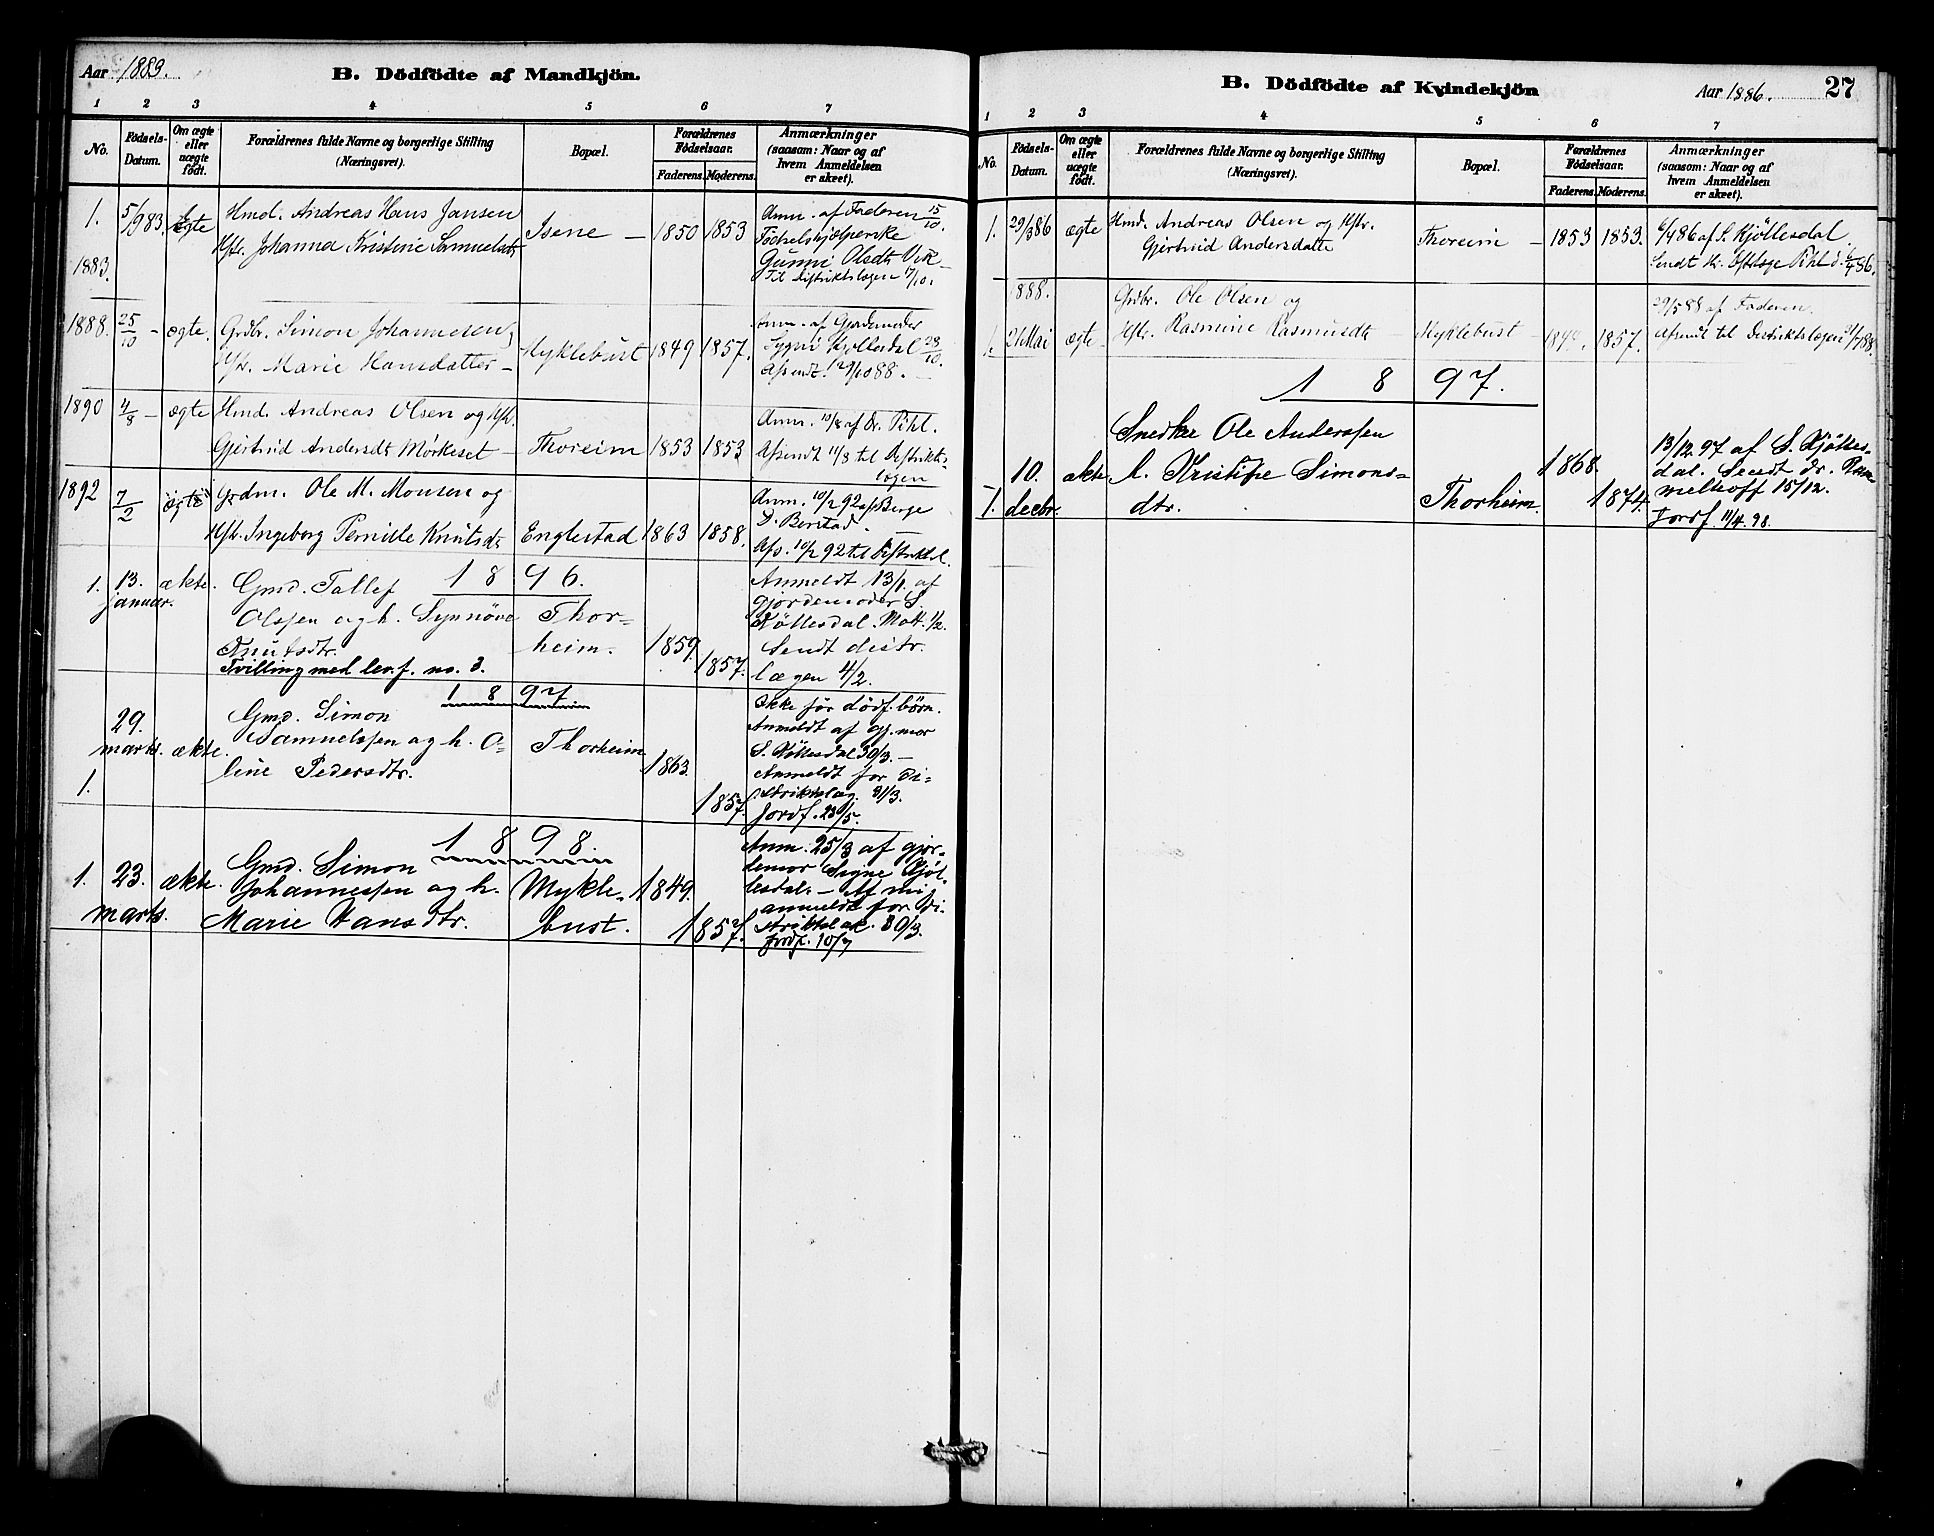 Aar 1883.
B. Dödfödte af Mandkjön.
1 2 3 4 5 6 7
No.
Födsels-
Datum.
Om ægte
eller
uægte
födt.
Forældrenes fulde Navne og borgerlige Stilling
(Næringsvei).
Bopæl.
Forældrenes
Födselsaar.
Faderens. Moderens.
Anmærkninger
(saasom: Naar og af
hvem Anmeldelsen
er skeet).
1. 5/9 83. ægte Hmd. Andreas Hans Jansen
Hstr. Johanna Kristine Samuelsdtr
Isene — 1850 1853
Anm. af Faderen 15/10.
Födselshjælperske
Gunni Olsdtr Vik
Til Distriktslægen 17/10.
1883.
1888. 25/10 - ægte. Grdbr. Simon Johannesen,
Hstr. Marie Hansdatter —
Myklebust 1849 1857.
Anm. af Gjordemoder
Sygni Kjöllesdal 28/10.
Afsendt 29/10 88. —
1890 4/8 - ægte Hmd. Andreas Olsen og Hstr.
Gjertrud Andersdtr Mörkeset —
Thoreim 1853 1853
Anm. 10/8 af Dr. Pihl.
Afsendt 11/8 til Distrikts-
lægen
1892 7/2 ægte Grdm. Ole M. Monsen og
Hstr. Ingeborg Pernille Knutsdtr
Englestad 1863 1858.
Anm. 10/2 92 af Berge
D. Berstad.
Afs. 10/2 92 til Distriktsl.
1896.
1. 13. januar. ækte. Gmd. Tallef
Olssen og h. Synnöve
Knutsdtr.
Tvilling med lev. f. no. 3.
Thor-
heim. 1859 1857.
Anmeldt 13/1. af
gjordemoder S.
Kjöllesdal. Mott. 1/2.
Sendt distr.
lægen 4/2.
1897.
29. marts. ækte. Gmd. Simon
Samuelssen og h. O-
line Pedersdtr.
1.
Thorheim 1863. 1857.
Ikke för dödf. börn.
Anmeldt af gj. mor
S. Kjöllesdal 30/3. —
Anmeldt for di-
striktslæg. 31/3.
Jordf. 23/5.
1898.
1. 23. marts. ækte. Gmd. Simon
Johannessen og h.
Marie Hansdtr.
Mykle-
bust. 1849. 1857.
Anm. 25/3 af gjor-
demor Signe Kjöl-
lesdal. — Af mig
anmeldt for di-
striktslæ. 30/3.
Jordf. 10/7
B. Dödfödte af Kvindekjön
Aar 1886. 27
1 2 3 4 5 6 7
No.
Födsels-
Datum.
Om ægte
eller
uægte
födt.
Forældrenes fulde Navne og borgerlige Stilling
(Næringsvei).
Bopæl.
Forældrenes
Födselsaar.
Faderens. Moderens.
Anmærkninger
(saasom: Naar og af
hvem Anmeldelsen
er skeet).
1. 29/3 86 ægte Hmd. Andreas Olsen og Hstr.
Gjertrud Andersdatter
Thoreim — 1853 1853.
6/4 86 af S. Kjöllesdal
Sendt Hr. Dstlæge Pihl d. 6/4 86.
1888.
1. 21 Mai ægte Grdbr. Ole Olsen og
Hstr. Rasmine Rasmusdtr
Myklebust 1857.
29/5 88 af Faderen.
Afsendt til Distriktslægen
1897.
1. 10. decbr. ækte Snedker Ole Anderssen
h. Kristine Simons-
dtr.
Thorheim. 1868. 1874.
13/12. 97 af S. Kjölles-
dal. Sendt dr. Rum-
melhoff 15/12.
Jordf. 11/4. 98.